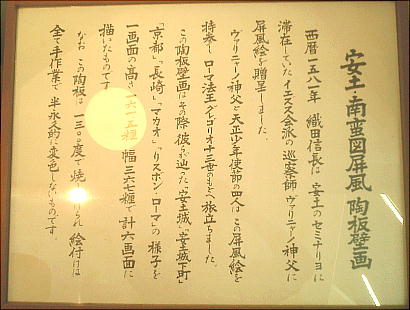 安土・南蛮図屏風 陶板壁画
西暦一五八一年 織田信長は 安土のセミナリヨに
滞在していたイエスス会派の巡察師 ヴァリニャーノ神父に
屏風絵を贈呈しました。
ヴァリニャーノ神父と天正少年使節の四人は この屏風絵を
持参し ローマ法王グレゴリオ十三世のもとへ旅立ちました。
この陶板壁画はその際 彼らが辿った「安土城」「安土城下町」
「京都」「長崎」「マカオ」「リスボン・ローマ」の様子を
一画面の高さ 一六一五粍 幅三六七粍で 計六画面に
描いたものです。
なお この陶板は 一三〇〇度で焼き付けられ 絵付けは
全て手作業で 半永久的に変色しないものです。